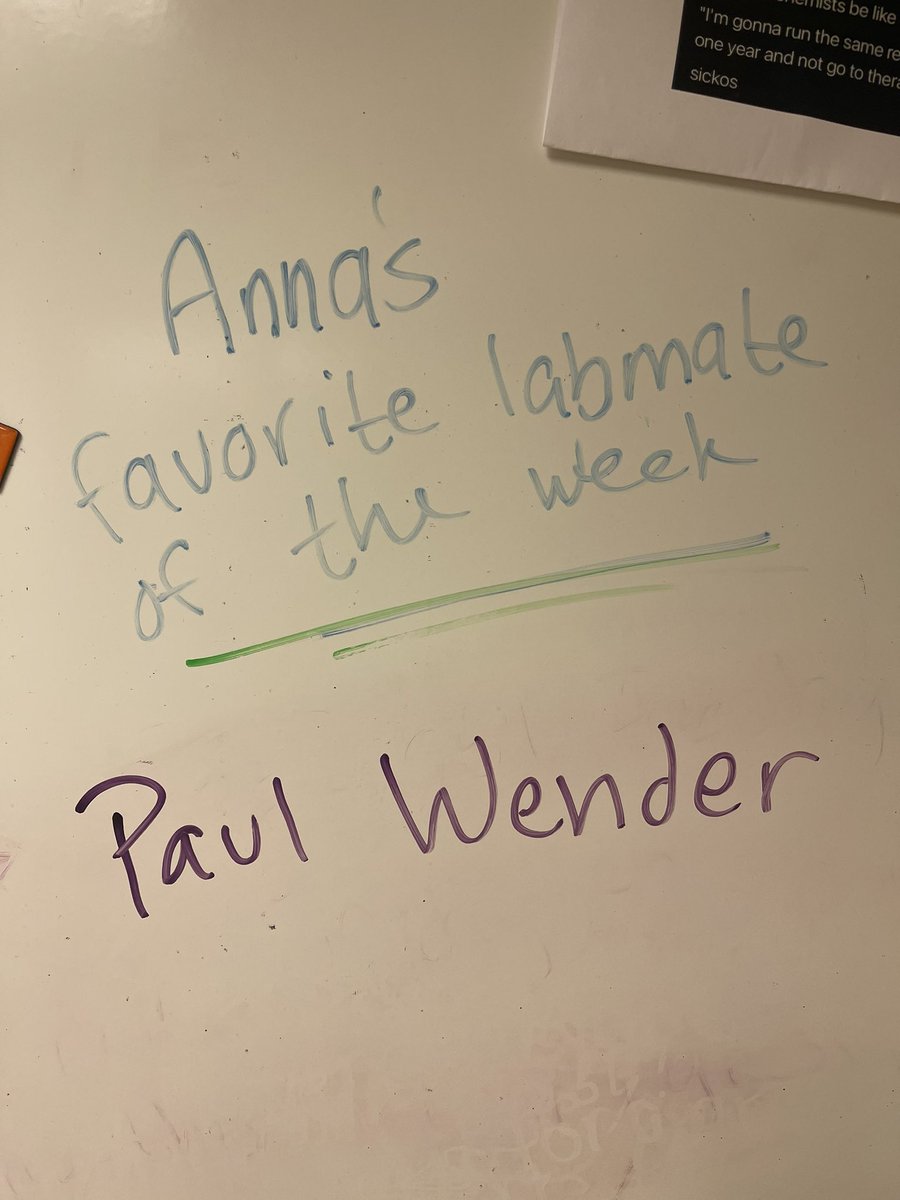 emists be like
"I'm gonna run the same re
one year and not go to thera
sickos
Anna's
favorite labmate
of the week
Paul Wender